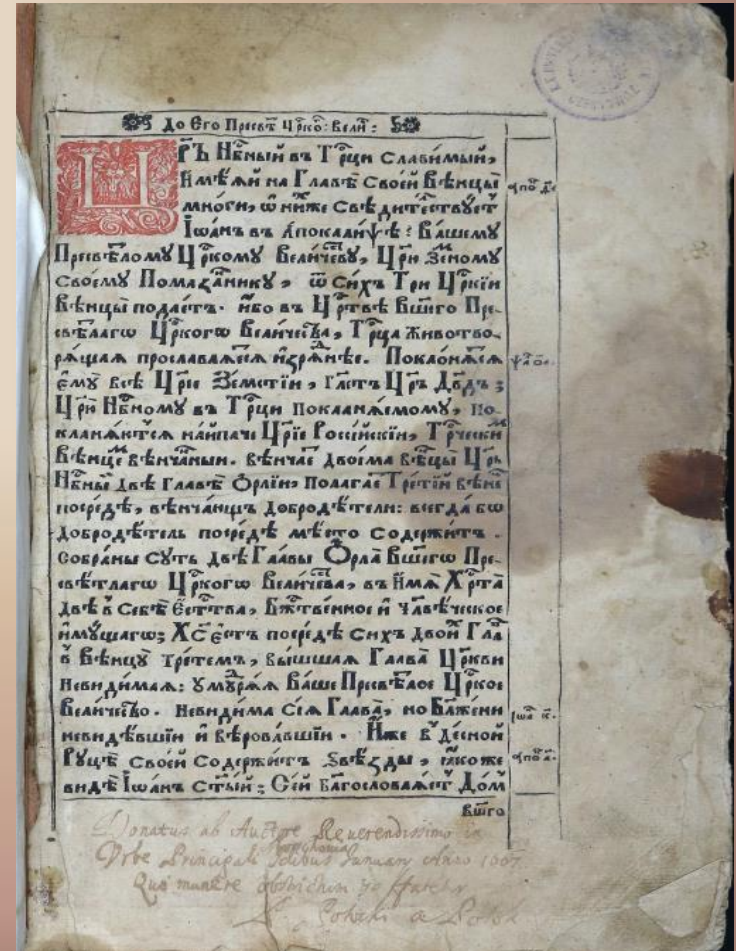 До Его Пресвѣ҃ Црко҃: Вели҃:
Цр҃Ь Нб҃ный въ Тр҃ци Славимый,
Имѣѧй на Главѣ Своей Вѣнцы
многи, ѡ нихже Свѣдителствꙋетъ
Іѡа́нъ въ Апокалиѱѣ: Вашемꙋ
Пресвѣломꙋ Цр҃комꙋ Величевꙋ, Цр҃и Земомꙋ
Своемꙋ Помаза́нникꙋ, ѿ Сихъ Три Цр҃кїи
Вѣнцы подаетъ. ибо въ Цр҃твѣ Вш҃его Пре-
свѣлагѡ Цр҃когѡ Величества, Тр҃ца Животво-
рѧщаѧ прославлѧесѧ изрѧнѣе. Поклонѧсѧ
емꙋ всѣ Цр҃іе Земстіи, Гл҃етъ Цр҃ъ Дв҃дъ;
Цр҃и Нб҃номꙋ въ Тр҃ци Покланѧемомꙋ, по-
кланѧютсѧ найпаче Цр҃іе Россійскіи, Тр҃чески
Вѣнце вѣнчаныи. вѣнчае двоема вѣцы Цр҃ь
Нб҃ны двѣ главѣ Орліи, полагае Третїй вѣне
посредѣ, вѣнчающъ добродѣтели: всегда бѡ
добродѣтель посредѣ мѣсто Содержитъ.
Собраны Сꙋть двѣ Главы Орла Вш҃егѡ Пре-
свѣтлагѡ Цр҃когѡ Величества, въ Имѧ Хр҃та
двѣ в Себѣ Естества, Бж҃твенное и Чл҃вѣческое
имꙋщагѡ; Хс҃ естъ посредѣ Сихъ двой Гла
в Вѣнцꙋ третемъ, вышшаѧ Глава Цр҃кви
Невидимаѧ: Умꙋдрѧѧ Ваше Пресвѣлое Цр҃кое
Величество. Невидима Сіѧ Глава, но Блажени
невидѣвшіи и вѣровавшіи. Иже в десной
Рꙋцѣ Своей Содержитъ Ѕвѣзды, ꙗкоже
видѣ Іѡанъ Ст҃ый; Сей Благословлѧетъ Дом
Вш҃го
Donatus ab Auctore Reverendissimo in
Urbe Principali Idibus Januarii Anno 1667
Quo munere obstrictum se fatetur